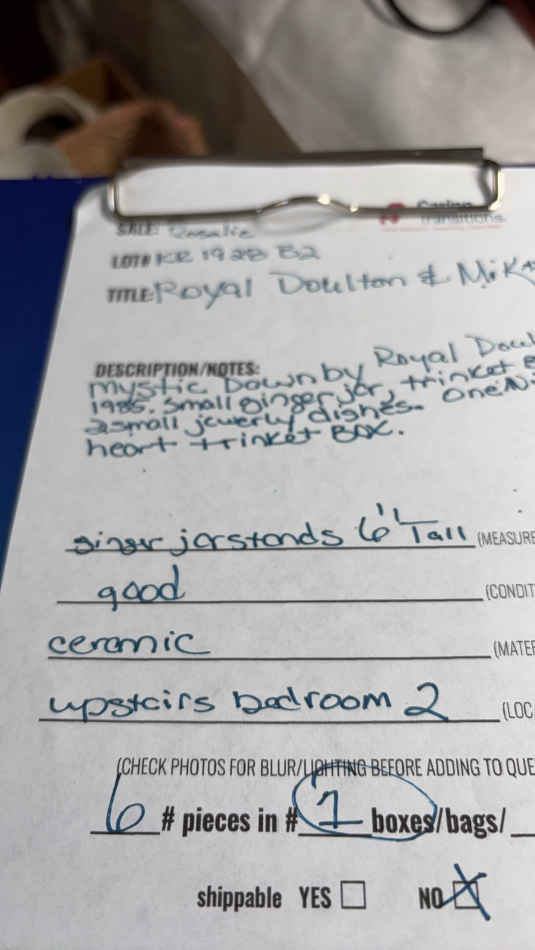 Caring
Transitions
SALE: Rosalie
LOT# KR 1928 B2
TITLE: Royal Doulton & Mika
DESCRIPTION/NOTES:
Mystic Dawn by Royal Doul
1985. Small ginger jar, trinket
2 small jewerly dishes. One
heart trinket Box.
ginger jar stands 6" Tall (MEASURE
good (CONDIT
ceramic (MATER
upstairs bedroom 2 (LOC
(CHECK PHOTOS FOR BLUR/LIGHTING BEFORE ADDING TO QUE
6 # pieces in # 1 boxes/bags/
shippable YES NO